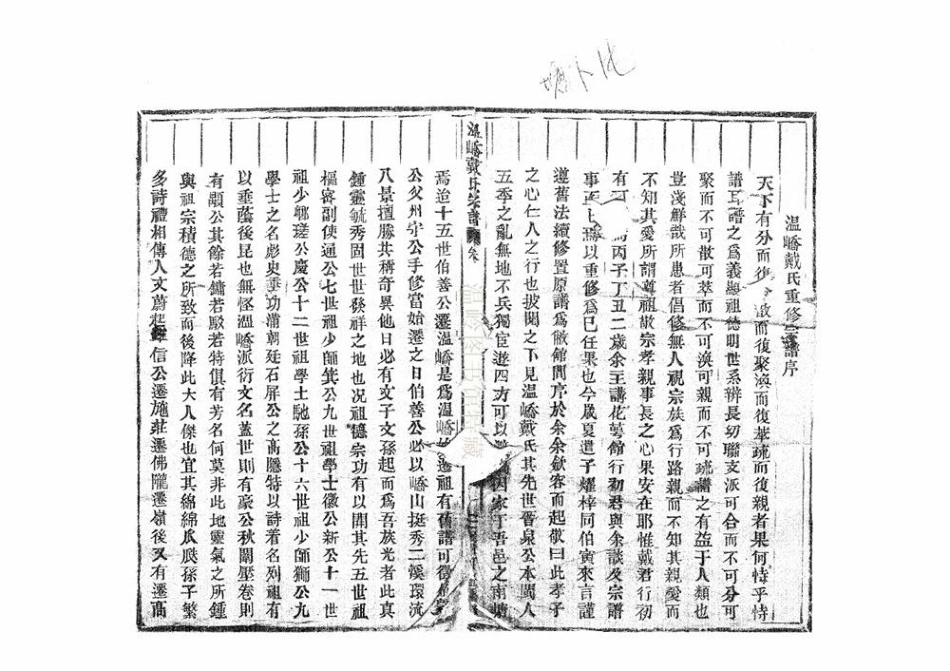 塘下戴
温嶠戴氏重修宗譜序
天下有分而復合散而復聚渙而復萃疏而復親者果何恃乎恃
譜耳譜之為義顯祖德明世系辨長幼聯支派可合而不可分可
聚而不可散可萃而不可渙可親而不可疏譜之有益于人類也
豈淺鮮哉所患者倡修無人視宗族為行路親而不知其親愛而
不知其愛所謂尊祖敬宗孝親事長之心果安在耶惟戴君行初
有 丙子丁丑二歲余主講花萼館行初君與余談及宗譜
事 以重修為己任果也今歲夏遣子耀梓同伯寅來言謹
遵舊法續修置原譜為敝館問序於余余歛容而起敬曰此孝子
之心仁人之行也披閱之下見温嶠戴氏其先世晉泉公本閩人
五季之亂無地不兵獨宦遊四方可以 家于吾邑之南塘
温嶠戴氏宗譜 卷
焉迨十五世伯善公遷温嶠是為温嶠 遷祖有舊譜可徵
公父州守公手修當始遷之日伯善公必以嶠山挺秀二溪環流
八景擅勝共稱奇異他日必有文子文孫起而為吾族光者此真
鍾靈毓秀固世世發祥之地也況祖德宗功有以開其先五世祖
樞密副使通公七世祖少師箕公九世祖學士徽公新公十一世
祖少卿瑳公慶公十二世祖學士馳孫公十六世祖少師獅公九
學士之名彪史垂功滿朝廷石屏公之高隱特以詩着名列祖有
以垂蔭後昆也無怪温嶠派衍文名蓋世則有豪公秋闈壓卷則
有顯公其餘若鏞若駁若特俱有芳名何莫非此地靈氣之所鍾
與祖宗積德之所致而後降此大人傑也宜其綿綿瓜瓞孫子繁
多詩禮相傳人文蔚起 信公遷施莊遷佛隴遷嶺後又有遷高